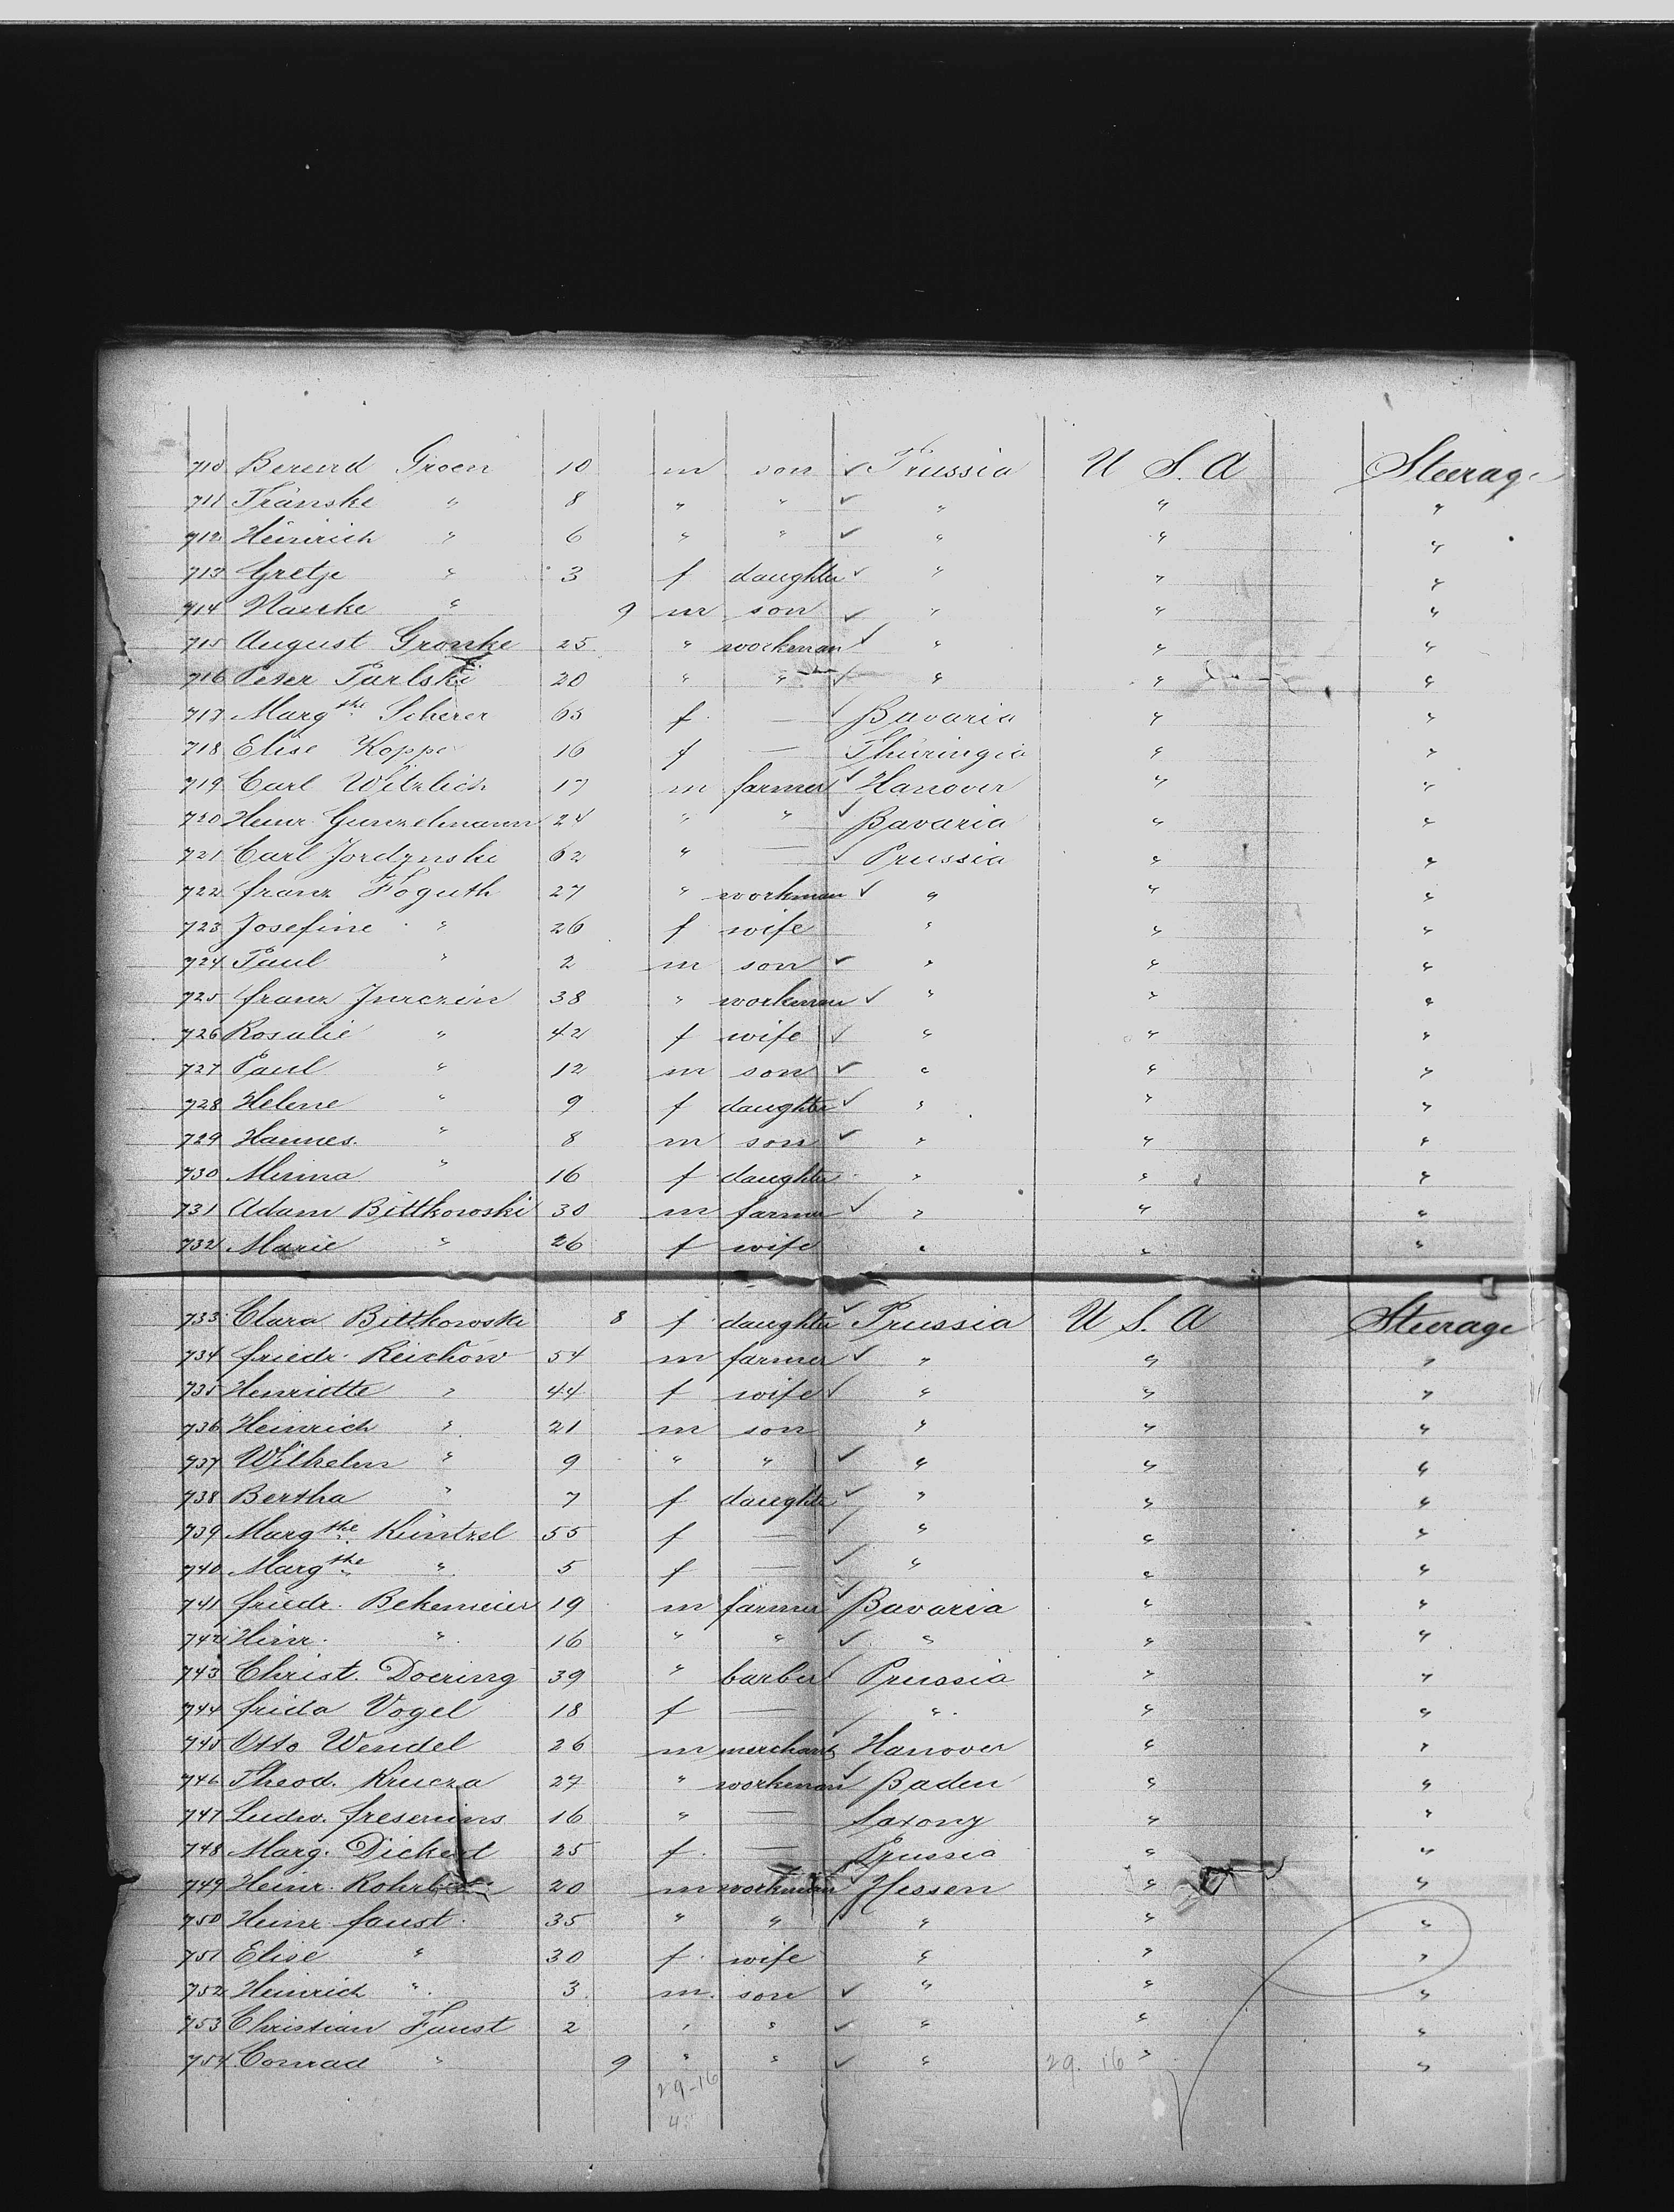 710 Berend Groen 10 m son ✓ Prussia U S. A Steerage
711 Fränske " 8 " " ✓ " " "
712 Heinrich " 6 " " ✓ " " "
713 Gretje " 3 f daughter ✓ " " "
714 Nanke " 9 m son ✓ " " "
715 August Gronke 25 " workman ✓ " " "
716 Peter Parlski 20 " " ✓ " " "
717 Marg the Scherer 65 f — ✓ Bavaria " "
718 Elise Koppe 16 f — Thüringia " "
719 Carl Witzlich 17 m farmer ✓ Hanover " "
720 Heinr. Gunzelmann 24 " " ✓ Bavaria " "
721 Carl Jordznski 62 " — ✓ Prussia " "
722 franz Foguth 27 " workman ✓ " " "
723 Josefine " 26 f wife " " "
724 Paul " 2 m son ✓ " " "
725 franz Jurczin 38 " workman ✓ " " "
726 Rosalie " 42 f wife ✓ " " "
727 Paul " 12 m son ✓ " " "
728 Helene " 9 f daughter ✓ " " "
729 Hannes. " 8 m son ✓ " " "
730 Minna " 16 f daughter " " "
731 Adam Bittkowski 30 m farmer ✓ " " "
732 Marie " 26 f wife " " "
733 Clara Bittkowski 8 f daughter ✓ Prussia U S. A Steerage
734 friedr. Reichow 54 m farmer ✓ " " "
735 Henriette " 44 f wife ✓ " " "
736 Heinrich " 21 m son " " "
737 Wilhelm " 9 " " ✓ " " "
738 Bertha " 7 f daughter ✓ " " "
739 Marg the Küntzel 55 f — ✓ " " "
740 Marg the " 5 f — ✓ " " "
741 friedr. Bekemeier 19 m farmer ✓ Bavaria " "
742 Hinr. " 16 " " ✓ " " "
743 Christ. Doering 39 " barber ✓ Prussia " "
744 frida Vogel 18 f — " " "
745 Otto Wendel 26 m merchant ✓ Hanover " "
746 Theod. Krucza 27 " workman ✓ Baden " "
747 Ludw. fresenius 16 " — Saxony " "
748 Marg. Dickert 25 f. — Prussia " "
749 Heinr. 20 m workman ✓ Hessen " "
750 Heinr. faust. 35 " " ✓ " " "
751 Elise " 30 f. wife " " "
752 Heinrich " 3 m. son ✓ " " "
753 Christian Faust 2 " " ✓ " " "
754 Conrad " 9 " " ✓ " 29. 16 " "
29-16
45